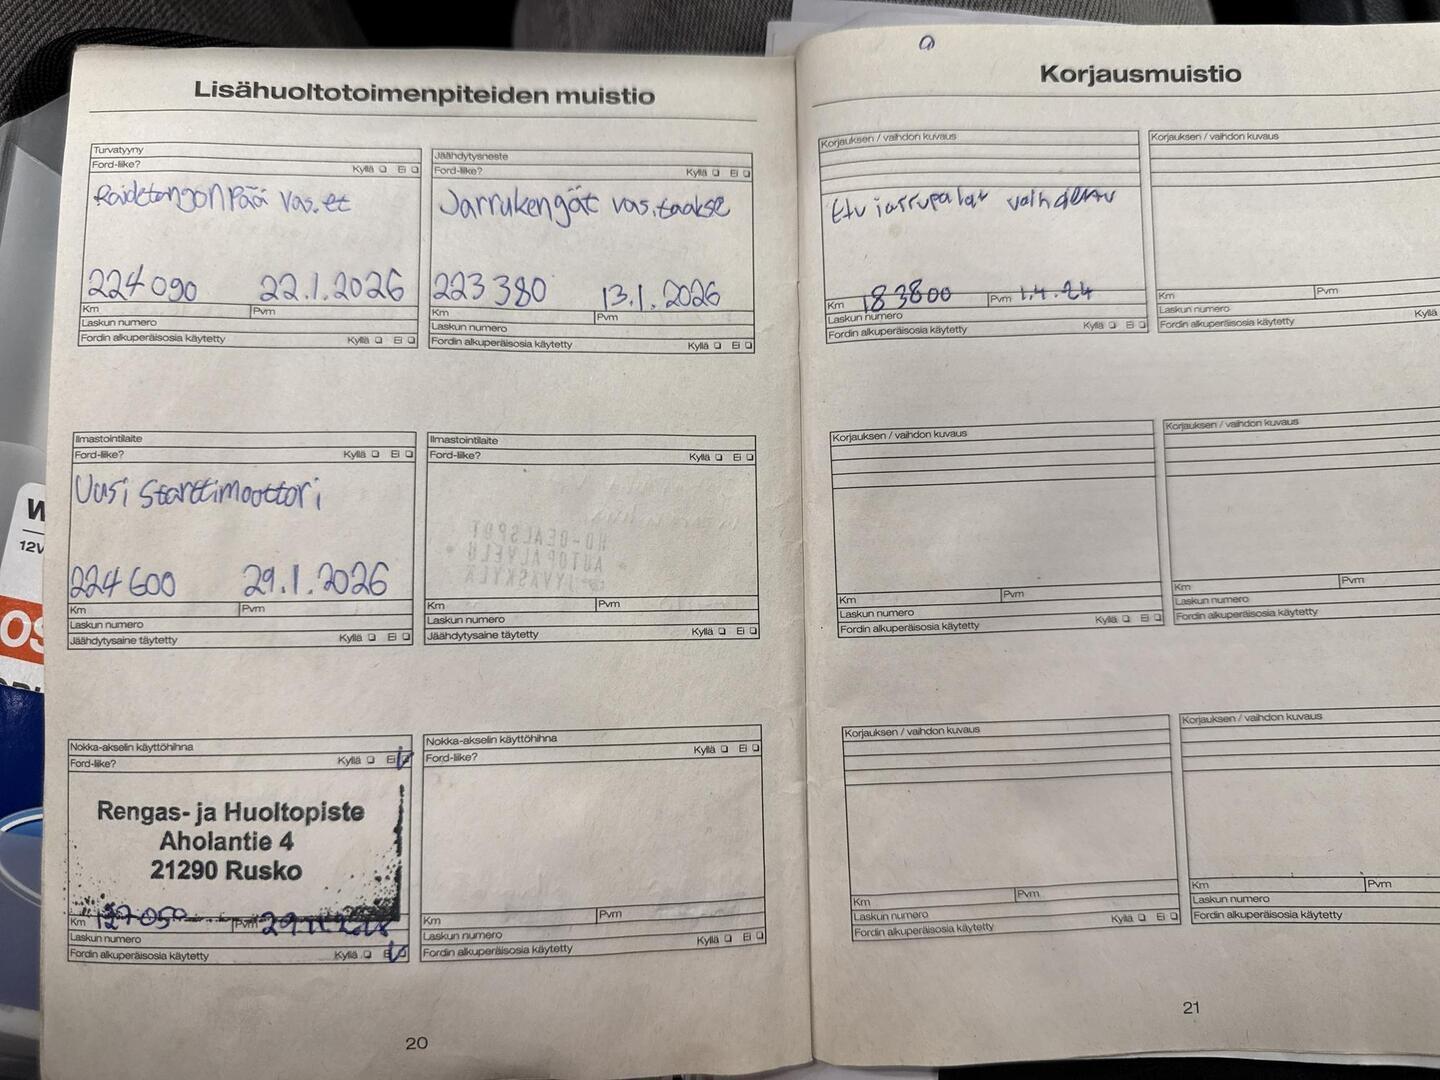 Lisähuoltotoimenpiteiden muistio
Turvatyyny
Ford-liike? Kyllä Ei
Raidetangon Pää vas. et
224 090 22.1.2026
Km Pvm
Laskun numero
Fordin alkuperäisosia käytetty Kyllä Ei
Jäähdytysneste
Ford-liike? Kyllä Ei
Jarrukengät vas. taakse
223 380 13.1.2026
Km Pvm
Laskun numero
Fordin alkuperäisosia käytetty Kyllä Ei
Ilmastointilaite
Ford-liike? Kyllä Ei
Uusi starttimoottori
224 600 29.1.2026
Km Pvm
Laskun numero
Jäähdytysaine täytetty Kyllä Ei
Ilmastointilaite
Ford-liike? Kyllä Ei
Km Pvm
Laskun numero
Jäähdytysaine täytetty Kyllä Ei
Nokka-akselin käyttöhihna
Ford-liike? Kyllä Ei
Rengas- ja Huoltopiste
Aholantie 4
21290 Rusko
Km 127050 Pvm
Laskun numero
Fordin alkuperäisosia käytetty Kyllä Ei
Nokka-akselin käyttöhihna
Ford-liike? Kyllä Ei
Km Pvm
Laskun numero
Fordin alkuperäisosia käytetty Kyllä Ei
20
Korjausmuistio
Korjauksen / vaihdon kuvaus
Etu jarrupalat vaihdettu
Km 183800 Pvm 1.4.24
Laskun numero
Fordin alkuperäisosia käytetty Kyllä Ei
Korjauksen / vaihdon kuvaus
Km Pvm
Laskun numero
Fordin alkuperäisosia käytetty Kyllä
Korjauksen / vaihdon kuvaus
Km Pvm
Laskun numero
Fordin alkuperäisosia käytetty Kyllä Ei
Korjauksen / vaihdon kuvaus
Km Pvm
Laskun numero
Fordin alkuperäisosia käytetty
Korjauksen / vaihdon kuvaus
Km Pvm
Laskun numero
Fordin alkuperäisosia käytetty Kyllä Ei
Korjauksen / vaihdon kuvaus
Km Pvm
Laskun numero
Fordin alkuperäisosia käytetty
21
W
12V
OS